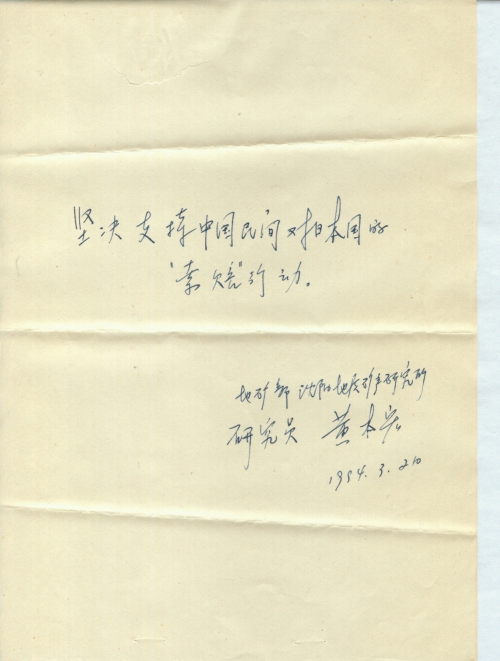 坚决支持中国民间对日本国的
“索赔”行动。
地矿部沈阳地质矿产研究所
研究员 黄本宏
1994.3.20